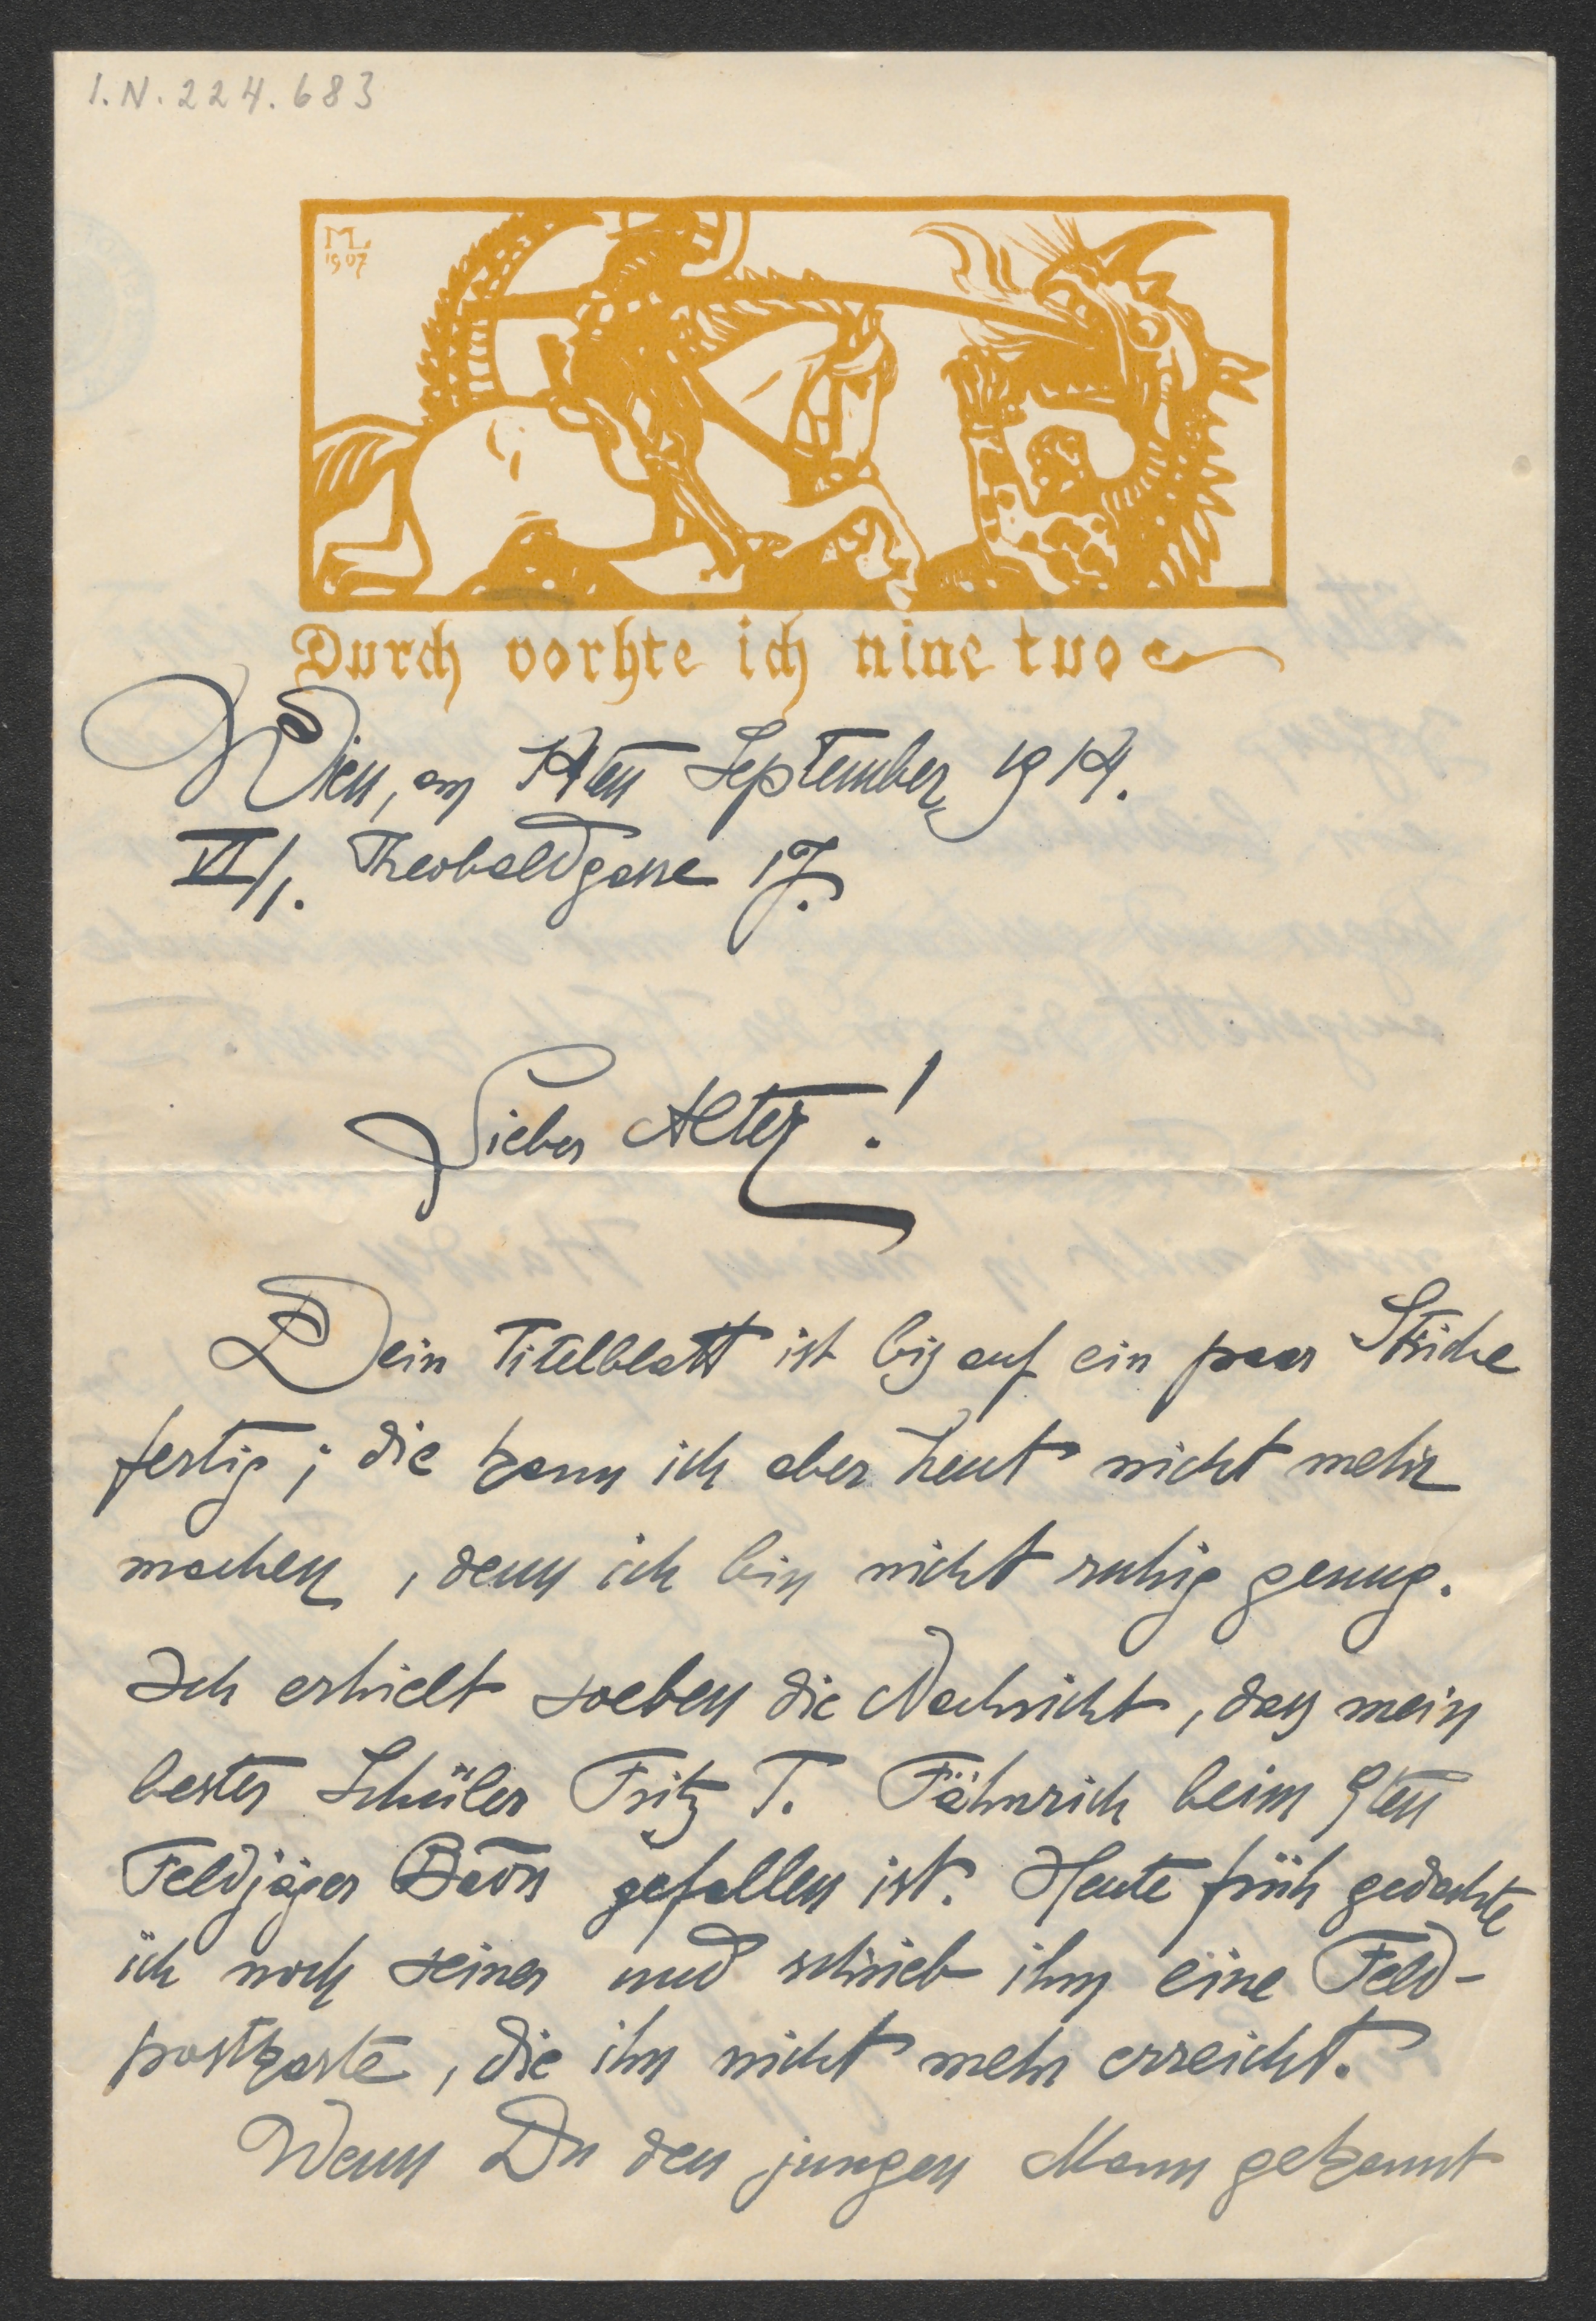 I.N. 224.683
ML
1907
Durch vorhte ich nine tuo
Wien, am 14ten September 1914.
VI/1. Theobaldgasse 17.
Lieber Alter!
Dein Titelblatt ist bis auf ein paar Striche
fertig; die kann ich aber heut nicht mehr
machen, denn ich bin nicht ruhig genug.
Ich erhielt soeben die Nachricht, dass mein
bester Schüler Fritz T. Fähnrich beim 9ten
Feldjäger Baon gefallen ist. Heute früh gedachte
ich noch seiner und schrieb ihm eine Feld-
postkarte, die ihn nicht mehr erreicht.
Wenn Du den jungen Mann gekannt